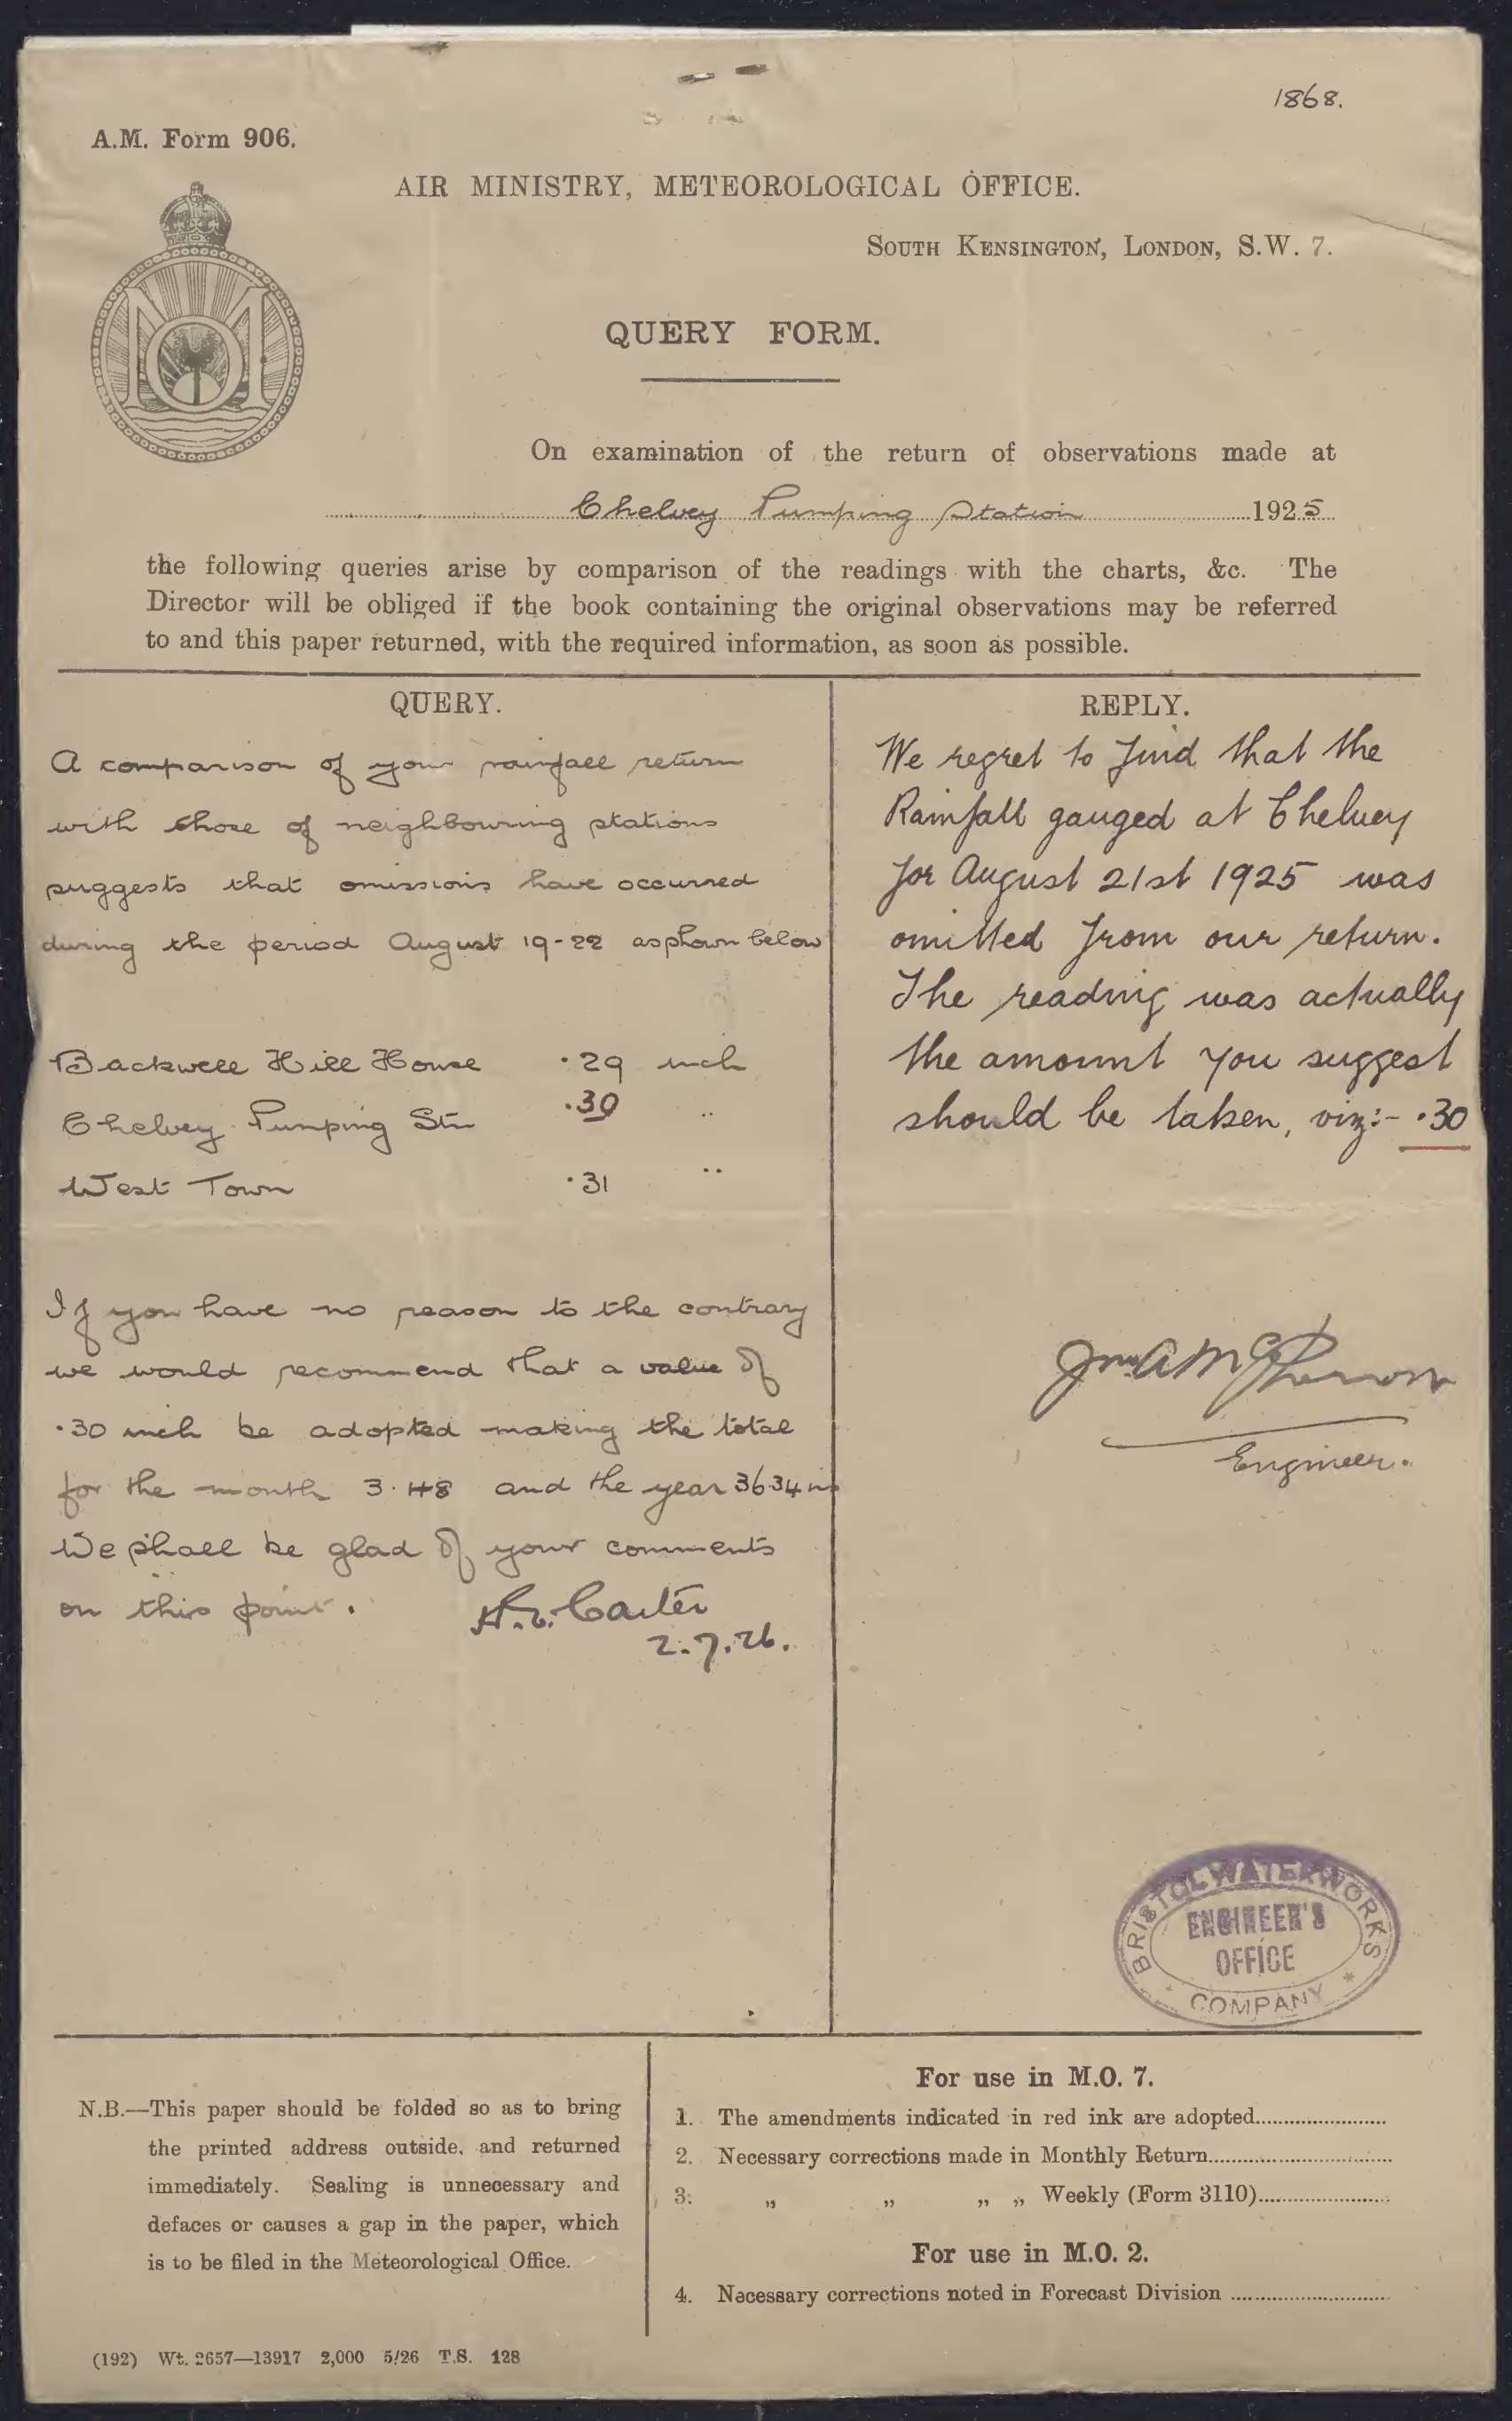 1868.
A.M. Form 906.
AIR MINISTRY, METEOROLOGICAL OFFICE.
SOUTH KENSINGTON, LONDON, S.W. 7.
MO
QUERY FORM.
On examination of the return of observations made at
Chelvey Pumping Station 1925
the following queries arise by comparison of the readings with the charts, &c. The
Director will be obliged if the book containing the original observations may be referred
to and this paper returned, with the required information, as soon as possible.
QUERY.
A comparison of your rainfall return
with those of neighbouring stations
suggests that omissions have occurred
during the period August 19-22 as shown below
Backwell Hill House .29 inch
Chelvey Pumping Stn .30 "
West Town .31 "
If you have no reason to the contrary
we would recommend that a value of
.30 inch be adopted making the total
for the month 3.48 and the year 36.34 in
We shall be glad of your comments
on this point. Carter
2.7.26.
REPLY.
We regret to find that the
Rainfall gauged at Chelvey
for August 21st 1925 was
omitted from our return.
The reading was actually
the amount you suggest
should be taken, viz:- .30
Engineer.
BRISTOL WATERWORKS
ENGINEER'S
OFFICE
COMPANY
N.B.—This paper should be folded so as to bring
the printed address outside, and returned
immediately. Sealing is unnecessary and
defaces or causes a gap in the paper, which
is to be filed in the Meteorological Office.
For use in M.O. 7.
1. The amendments indicated in red ink are adopted
2. Necessary corrections made in Monthly Return
3. " " " " Weekly (Form 3110)
For use in M.O. 2.
4. Necessary corrections noted in Forecast Division
(192) Wt. 2657—13917 2,000 5/26 T.S. 128